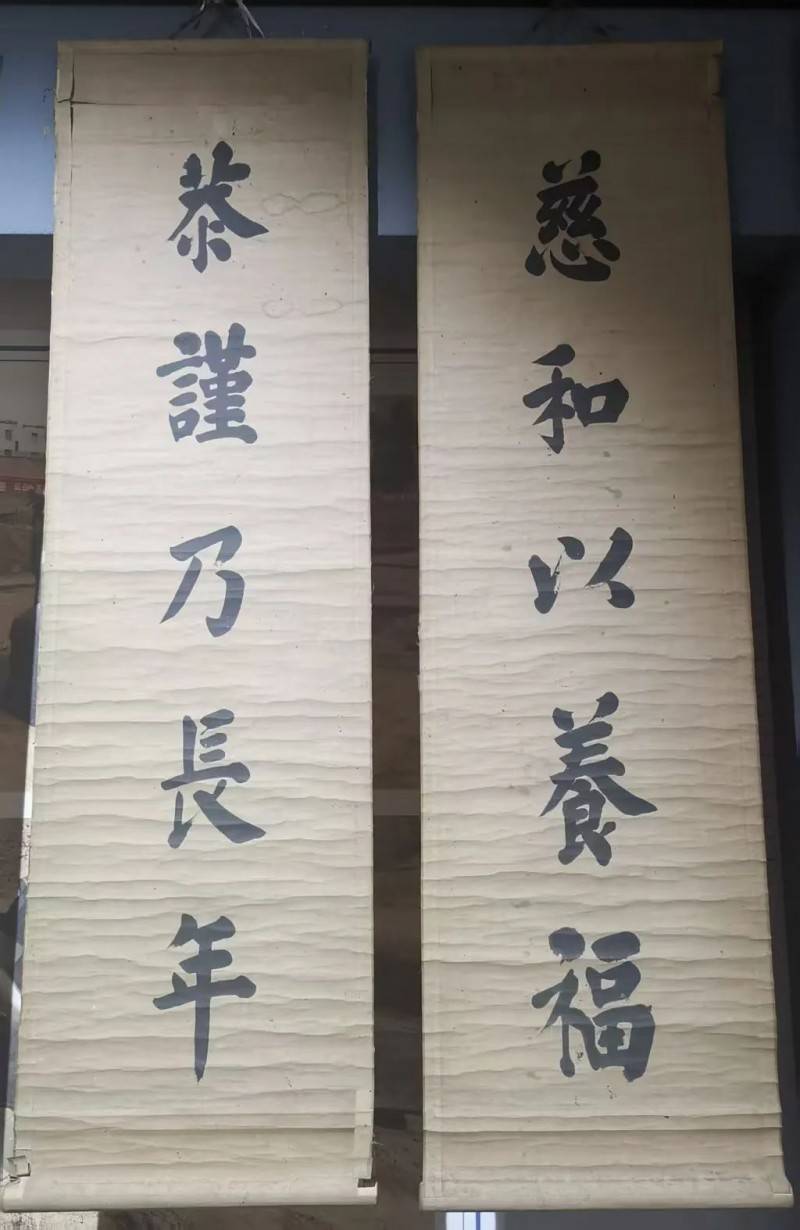 慈和以養福
恭謹乃長年